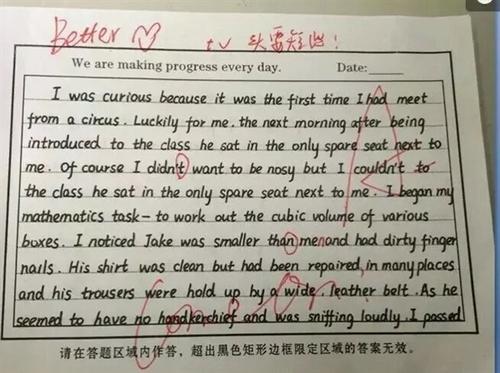 Better
tv 头要短些!
We are making progress every day. Date:
I was curious because it was the first time I had meet
from a circus. Luckily for me, the next morning after being
introduced to the class he sat in the only spare seat next to
me. Of course I didn't want to be nosy but I couldn't to
the class he sat in the only spare seat next to me. I began my
mathematics task - to work out the cubic volume of various
boxes. I noticed Jake was smaller than men and had dirty finger
nails. His shirt was clean but had been repaired, in many places
and his trousers were hold up by a wide, leather belt. As he
seemed to have no handkerchief and was sniffing loudly. I passed
请在答题区域内作答，超出黑色矩形边框限定区域的答案无效。